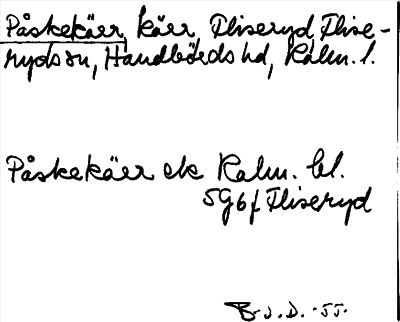 Påskekärr, kärr, Fliseryd, Flise-
ryds sn, Handbörds hd, Kalm. l.
Påskekärr ek Kalm. bl.
5G6f Fliseryd
B.J.D. -55.